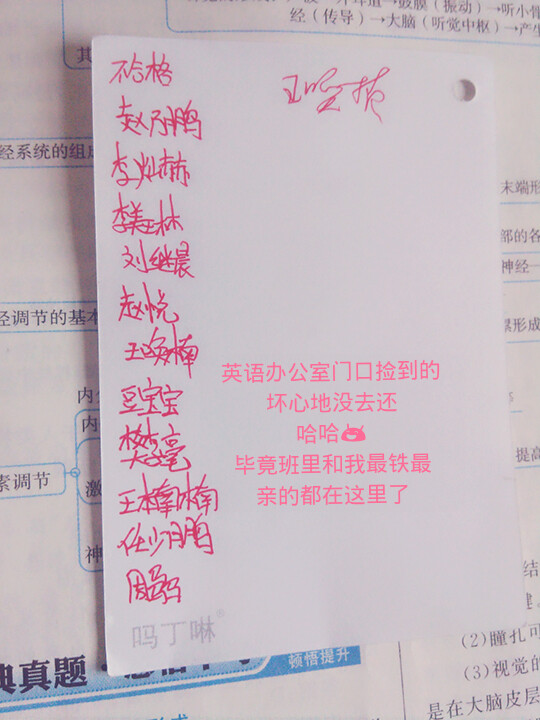 耳道→鼓膜（振动）→听小骨
经（传导）→大脑（听觉中枢）→产生
不合格
赵乃鹏
李灿赫
李美林
刘继晨
赵悦
王晓楠
豆宝宝
樊李毫
王楠楠
任少鹏
周莎莎
王坚贞
经系统的组成
末端形
部的各
神经
经调节的基本
累形成
素调节
内分
内
激
神
提高
英语办公室门口捡到的
坏心地没去还
哈哈
毕竟班里和我最铁最
亲的都在这里了
吗丁啉®
典真题
顿悟提升
结
健。
(2)瞳孔可
(3)视觉的
是在大脑皮层